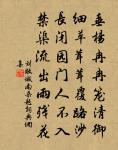 垂楊冉冉籠清御
細草茸茸覆路沙
長閉園門人不入
禁渠流出雨殘花
劉敞城南雜題
集